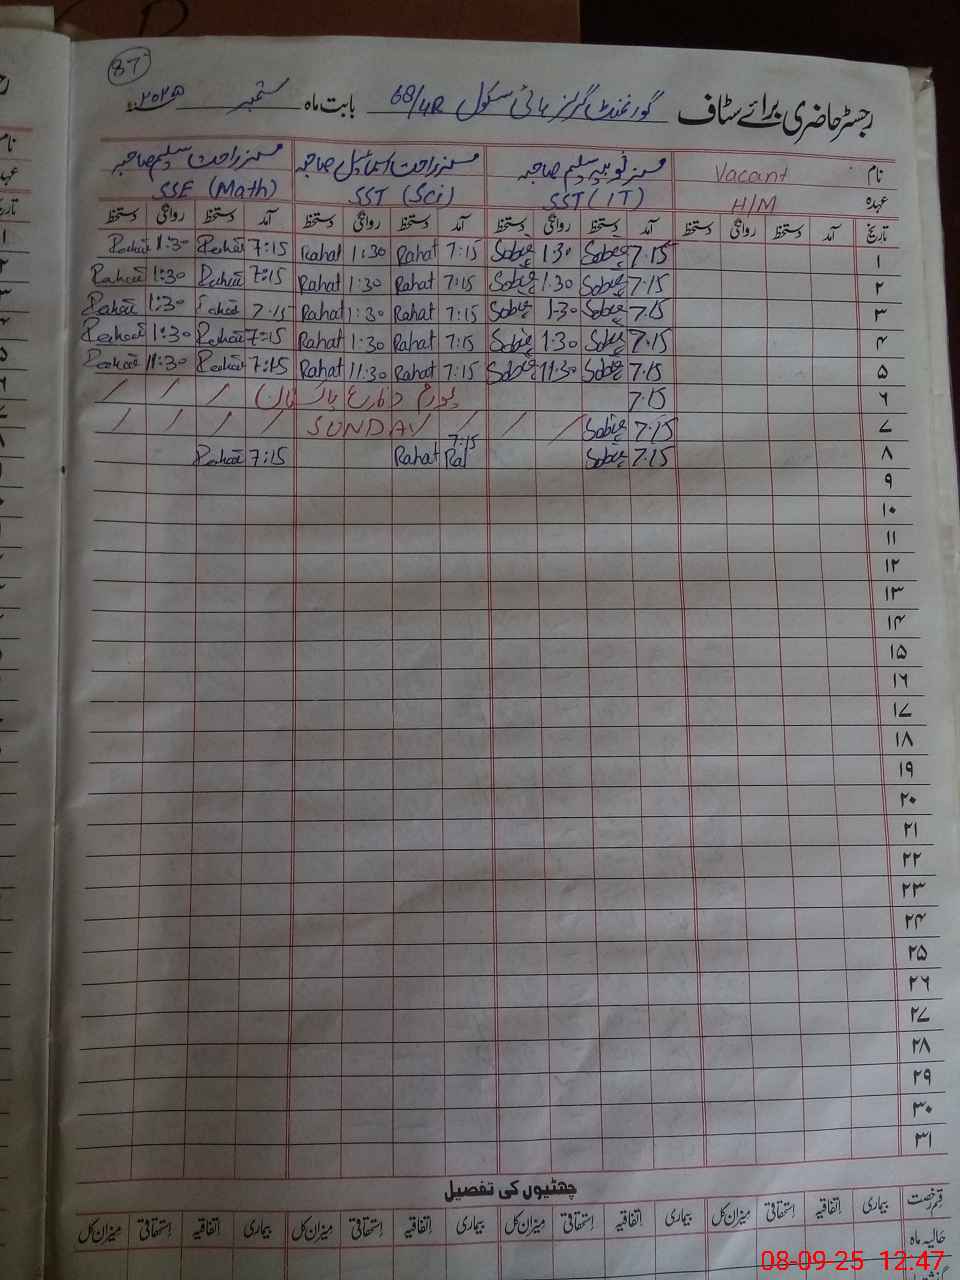 87
رجسٹر حاضری برائے سٹاف گورنمنٹ گرلز ہائی سکول 68/4R بابت ماہ ستمبر ۲۰۲۵ء
نام Vacant مسز ثوبیہ سلیم صاحبہ مسز راحت اسماعیل صاحبہ مسز راحت سلیم صاحبہ
عہدہ H/M SST (IT) SST (Sci) SSE (Math)
تاریخ آمد دستخط روانگی دستخط آمد دستخط روانگی دستخط آمد دستخط روانگی دستخط آمد دستخط روانگی دستخط
۱ 7.15 Sobia 1.30 Sobia 7:15 Rahat 1:30 Rahat 7:15 1:30
۲ 7.15 Sobia 1.30 Sobia 7:15 Rahat 1:30 Rahat 7:15 1:30
۳ 7.15 Sobia 1.30 Sobia 7:15 Rahat 1:30 Rahat 7:15 1:30
۴ 7.15 Sobia 1:30 Sobia 7:15 Rahat 1:30 Rahat 7:15 1:30
۵ 7.15 Sobia 11:30 Sobia 7:15 Rahat 11:30 Rahat 7:15 11:30
۶ 7.15 یوم دفاع پاکستان
۷ 7.15 Sobia SUNDAY
۸ 7.15 Sobia 7:15 Rahat 7:15
۹
۱۰
۱۱
۱۲
۱۳
۱۴
۱۵
۱۶
۱۷
۱۸
۱۹
۲۰
۲۱
۲۲
۲۳
۲۴
۲۵
۲۶
۲۷
۲۸
۲۹
۳۰
۳۱
چھٹیوں کی تفصیل
قسم رخصت بیماری اتفاقیہ استحقاقی میزان کل بیماری اتفاقیہ استحقاقی میزان کل بیماری اتفاقیہ استحقاقی میزان کل بیماری اتفاقیہ استحقاقی میزان کل
حالیہ ماہ
08-09-25 12:47